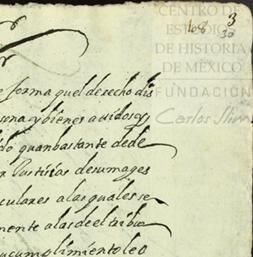 CENTRO DE
ESTUDIOS
DE HISTORIA
DE MÉXICO
FUNDACIÓN
Carlos Slim
168
3
30
forma quel derecho dis
sona y bienes avidos y
do quan bastante de de
Justicias de su mages
culares a las quales se
mente a la s del
cumplimiento le o